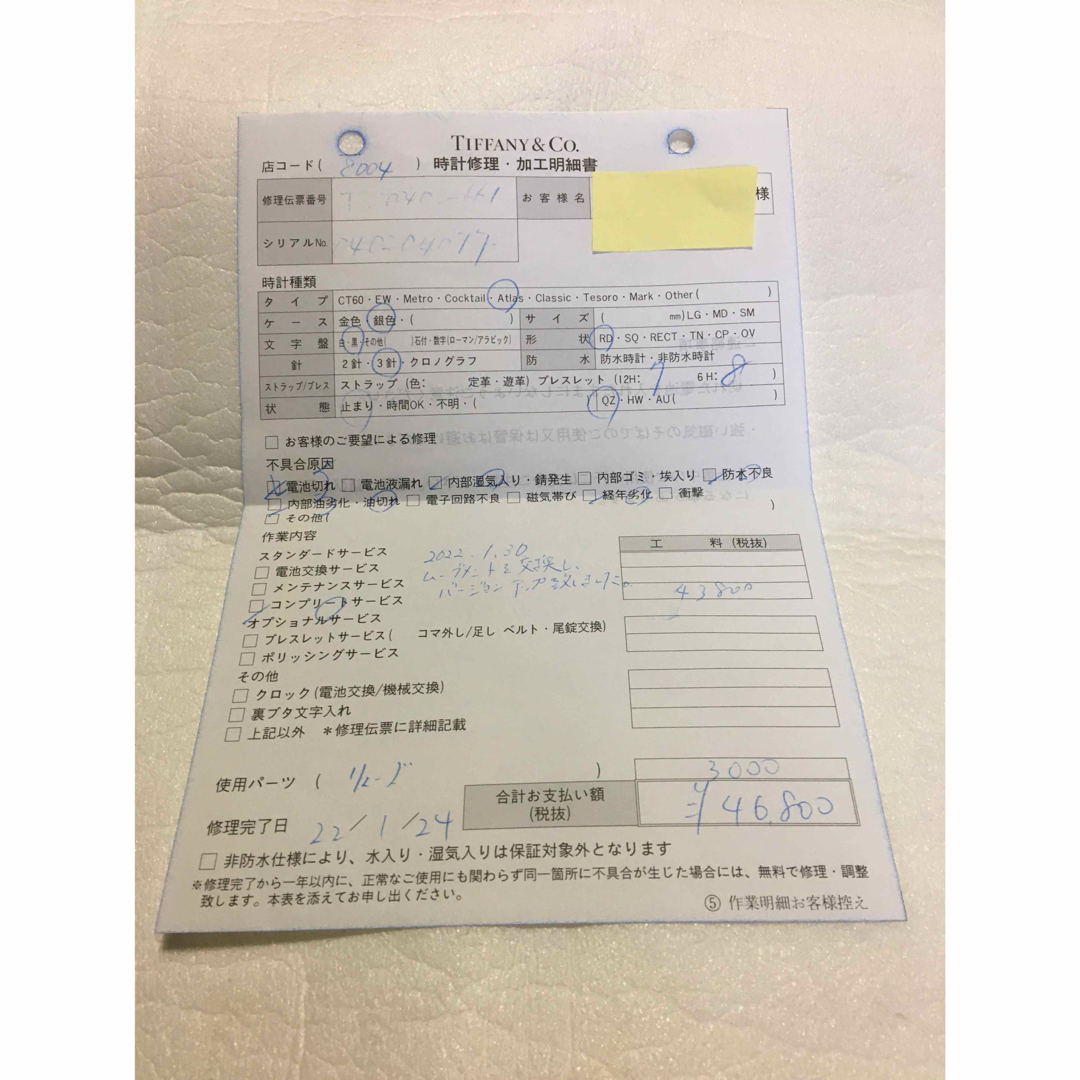 TIFFANY & CO.
店コード( 8004 ) 時計修理・加工明細書
修理伝票番号 お客様名 様
シリアルNo.
時計種類
タイプ CT60・EW・Metro・Cocktail・Atlas・Classic・Tesoro・Mark・Other( )
ケース 金色・銀色・( ) サイズ ( mm)LG・MD・SM
文字盤 白・黒・その他( )石付・数字(ローマン/アラビック) 形状 RD・SQ・RECT・TN・CP・OV
針 2針・3針・クロノグラフ 防水 防水時計・非防水時計
ストラップ/ブレス ストラップ(色: 定革・遊革) ブレスレット(12H: 7 6H: 8 )
状態 止まり・時間OK・不明・( ) QZ・HW・AU( )
□ お客様のご要望による修理
不具合原因
□ 電池切れ □ 電池液漏れ □ 内部湿気入り・錆発生 □ 内部ゴミ・埃入り □ 防水不良
□ 内部油劣化・油切れ □ 電子回路不良 □ 磁気帯び □ 経年劣化 □ 衝撃
□ その他( )
作業内容
工料(税抜)
スタンダードサービス
□ 電池交換サービス
□ メンテナンスサービス
□ コンプリートサービス 43800
2022.1.30
ムーブメントを交換し、
バージョンアップ致しました。
オプショナルサービス
□ ブレスレットサービス( コマ外し/足し ベルト・尾錠交換)
□ ポリッシングサービス
その他
□ クロック(電池交換/機械交換)
□ 裏ブタ文字入れ
□ 上記以外 *修理伝票に詳細記載
使用パーツ ( リューズ ) 3000
合計お支払い額(税抜) ¥46,800
修理完了日 22/1/24
□ 非防水仕様により、水入り・湿気入りは保証対象外となります
※修理完了から一年以内に、正常なご使用にも関わらず同一箇所に不具合が生じた場合には、無料で修理・調整
致します。本表を添えてお申し出ください。
⑤ 作業明細お客様控え